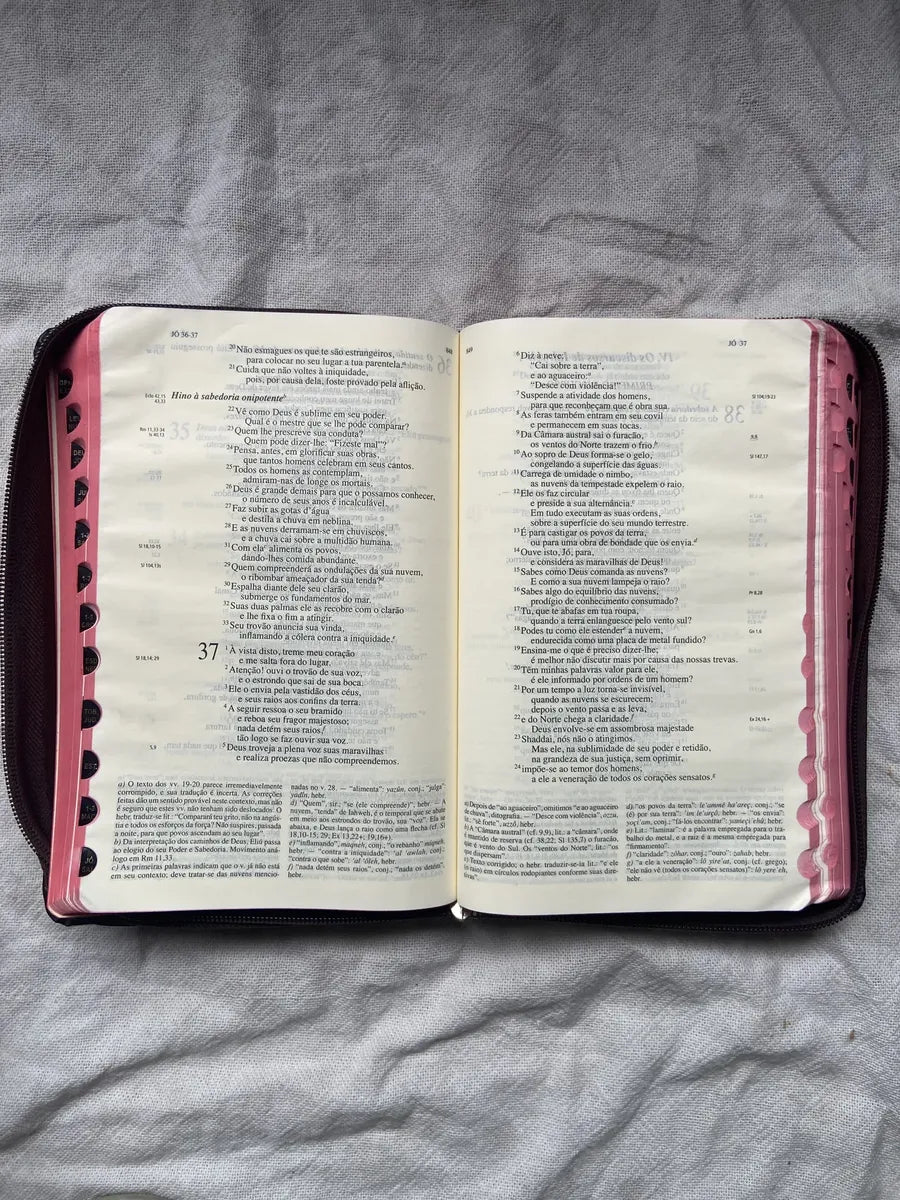 JÓ 36-37
648
20 Não esmagues os que te são estrangeiros,
para colocar no seu lugar a tua parentela.a
21 Cuida que não voltes à iniquidade,
pois, por causa dela, foste provado pela aflição.
Eclo 42,15
43,33
Hino à sabedoria onipotenteb
22 Vê como Deus é sublime em seu poder.
Qual é o mestre que se lhe pode comparar?
Rm 11,33-34
Is 40,13
23 Quem lhe prescreve sua conduta?
Quem pode dizer-lhe: "Fizeste mal"?
24 Pensa, antes, em glorificar suas obras,
que tantos homens celebram em seus cantos.
25 Todos os homens as contemplam,
admiram-nas de longe os mortais.
26 Deus é grande demais para que o possamos conhecer,
o número de seus anos é incalculável.
27 Faz subir as gotas d'água
e destila a chuva em neblina.
28 E as nuvens derramam-se em chuviscos,
e a chuva cai sobre a multidão humana.
Sl 18,10-15
31 Com elac alimenta os povos,
dando-lhes comida abundante.
Sl 104,13s
29 Quem compreenderá as ondulações da sua nuvem,
o ribombar ameaçador da sua tenda?d
30 Espalha diante dele seu clarão,
submerge os fundamentos do mar.
32 Suas duas palmas ele as recobre com o clarão
e lhe fixa o fim a atingir.
33 Seu trovão anuncia sua vinda,
inflamando a cólera contra a iniquidade.e
Sl 18,14; 29
37 1 À vista disto, treme meu coração
e me salta fora do lugar.
2 Atenção! ouvi o trovão de sua voz,
e o estrondo que sai de sua boca.
3 Ele o envia pela vastidão dos céus,
e seus raios aos confins da terra.
4 A seguir ressoa o seu bramido
e reboa seu fragor majestoso;
nada detém seus raios,f
tão logo se faz ouvir sua voz.
5,9
5 Deus troveja a plena voz suas maravilhas
e realiza proezas que não compreendemos.
a) O texto dos vv. 19-20 parece irremediavelmente
corrompido, e sua tradução é incerta. As correções
feitas dão um sentido provável neste contexto, mas não
é seguro que estes vv. não tenham sido deslocados. O
hebr. traduz-se lit.: "Comparai teu grito, não na angús-
tia e todos os esforços da força? Não suspires, passada
a noite, para que povos ascendam ao seu lugar".
b) Da interpretação dos caminhos de Deus, Eliú passa
ao elogio do seu Poder e Sabedoria. Movimento aná-
logo em Rm 11,33.
c) As primeiras palavras indicam que o v. já não está
em seu contexto; deve tratar-se das nuvens mencio-
nadas no v. 28. — "alimenta": yazûn, conj.;
yadîn, hebr.
d) "Quem", sir.; "se (ele compreende)", hebr. — A
nuvem, "tenda" de Iahweh, é o temporal que se abate
em meio aos estrondos do trovão, sua "voz". Ela se
abaixa, e Deus lança o raio como uma flecha (cf. Sl
18,10-15; 29; Ex 13,22+; 19,16+)
e) "inflamando", maqneh, conj.; "o rebanho" miqneh,
hebr. — "contra a iniquidade": 'al 'awlah, conj.;
"contra o que sobe": 'al 'ôleh, hebr.
f) "nada detém seus raios", conj.; "nada os detém"
hebr.
649
JÓ 37
6 Diz à neve:
"Cai sobre a terra",
e ao aguaceiro:a
"Desce com violência!"
Sl 104,19-23
7 Suspende a atividade dos homens,
para que reconheçam que é obra sua.
8 As feras também entram em seu covil
e permanecem em suas tocas.
9,9
9 Da Câmara austral sai o furacão,
os ventos do Norte trazem o frio.b
Sl 147,17
10 Ao sopro de Deus forma-se o gelo,
congelando a superfície das águas.
11 Carrega de umidade o nimbo,
as nuvens da tempestade expelem o raio.
12 Ele os faz circular
e preside a sua alternância.c
Em tudo executam as suas ordens,
sobre a superfície do seu mundo terrestre.
13 É para castigar os povos da terra,
ou para uma obra de bondade que os envia.d
14 Ouve isto, Jó, para,
e considera as maravilhas de Deus!
15 Sabes como Deus comanda as nuvens?
E como a sua nuvem lampeja o raio?
Pr 8,28
16 Sabes algo do equilíbrio das nuvens,
prodígio de conhecimento consumado?
17 Tu, que te abafas em tua roupa,
quando a terra enlanguesce pelo vento sul?
Gn 1,6
18 Podes tu como ele estendere a nuvem,
endurecida como uma placa de metal fundido?
19 Ensina-me o que é preciso dizer-lhe;
é melhor não discutir mais por causa das nossas trevas.
20 Têm minhas palavras valor para ele,
é ele informado por ordens de um homem?
21 Por um tempo a luz torna-se invisível,
quando as nuvens se escurecem;
depois o vento passa e as leva,
Ex 24,16 +
22 e do Norte chega a claridade.f
Deus envolve-se em assombrosa majestade
23 Shaddai, nós não o atingimos.
Mas ele, na sublimidade de seu poder e retidão,
na grandeza de sua justiça, sem oprimir,
24 impõe-se ao temor dos homens;
a ele a veneração de todos os corações sensatos.g
a) Depois de "ao aguaceiro", omitimos "e ao aguaceiro
de chuva", ditografia. — "Desce com violência",
lit.: "sê forte", hebr.
b) A "Câmara austral" (cf. 9,9), lit.: a "câmara", onde
é mantido de reserva (cf. 38,22; Sl 135,7) o furacão
que é vento do Sul. Os "ventos do Norte", lit.: "os
que dispersam".
c) Texto corrigido; o hebr. traduzir-se-ia lit.: "e ele
(o raio) em círculos rodopiantes conforme suas dire-
tivas".
d) "os povos da terra": conj.; "se
(é) por sua terra": hebr. — "os envia":
conj.; "fá-los encontrar": hebr.
e) Lit.: "laminar": é a palavra empregada para o tra-
balho do metal, e a raiz é a mesma empregada para
"firmamento".
f) "claridade": zôhar, conj.; "ouro": zahab, hebr.
g) "a ele a veneração": conj. (cf. grego);
"ele não vê (todos os corações sensatos)": lô yere'eh,
hebr.
JÓ
EST